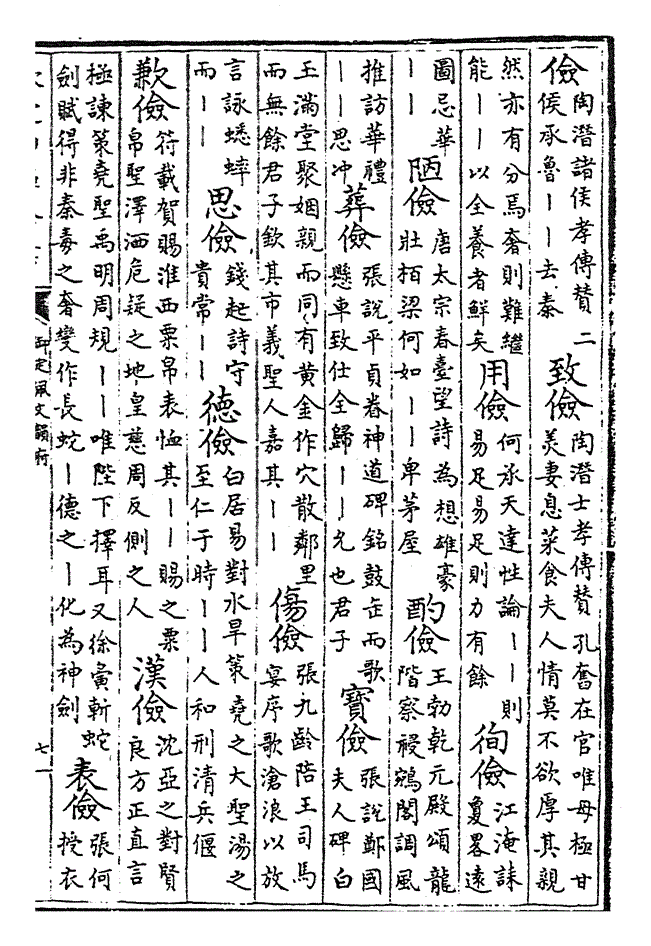 儉 陶潛諸侯孝傳贊 二侯承魯丨丨去秦 致儉 陶潛士孝傳贊孔奮在官唯母極甘羙妻息菜食夫人情莫不欲厚其親
然亦有分焉奢則難繼能丨丨以全養者鮮矣 用儉 何承天達性論丨丨則易足易足則力有餘 徇儉 江淹誄夐畧遠
圖忌華丨丨 陋儉 唐太宗春臺望詩為想雄豪壯栢梁何如丨丨卑茅屋 酌儉 王勃乾元殿頌龍階察祲鵷閣調風
推訪華禮丨丨思冲 葬儉 張說平貞眷神道碑銘鼓缶而歌懸車致仕全歸丨丨允也君子 寶儉 張說鄭國夫人碑白
玉滿堂聚姻親而同有黄金作穴散鄰里而無餘君子欽其市義聖人嘉其丨丨 傷儉 張九齡陪王司馬宴序歌滄浪以放
言詠蟋蟀而丨丨 思儉 錢起詩守貴常丨丨 德儉 白居易對水旱策堯之大聖湯之至仁于時丨丨人和刑清兵偃
歉儉 符載賀賜淮西粟帛表恤其丨丨賜之粟帛聖澤洒危疑之地皇慈周反側之人 漢儉 沈亞之對賢良方正直言
極諫策堯聖禹明周規丨丨唯陛下擇耳又徐寅斬蛇劍賦得非秦毒之奢變作長蛇丨德之丨化為神劍 表儉 張何授衣
御定佩文韻府
七